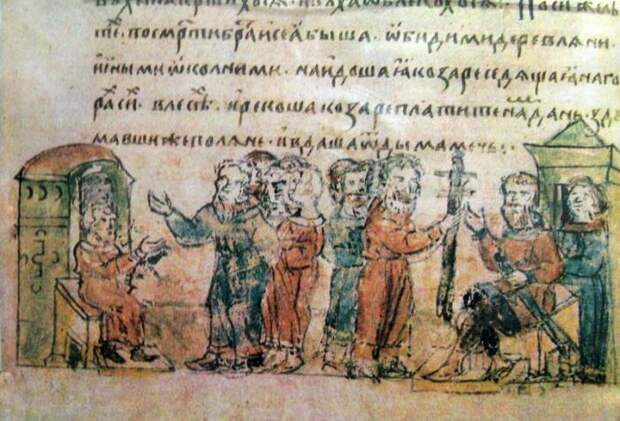 По сиⷯ же лѣ
теⷯ . по смр҃ти браⷮи сеꙗ быша . ѡбидими деревлѧни
инѣми ѡколними . наидоша ꙗ козаре седѧщаꙗ на го
раⷯ сиⷯ . в лесѣⷯ . и рекоша козаре платите наⷨ дань . зду
мавши же полѧне . и вдаша ѿ дыма мечь :